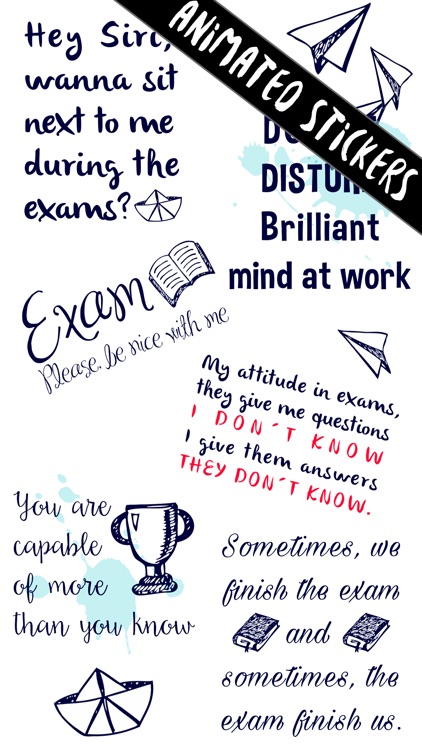 ANIMATED STICKERS
Hey Siri,
wanna sit
next to me
during the
exams?
DO
DISTURB
Brilliant
mind at work
Exam
Please, be nice with me
My attitude in exams,
they give me questions
I DON´T KNOW
I give them answers
THEY DON´T KNOW.
You are
capable
of more
than you know
Sometimes, we
finish the exam
and
sometimes, the
exam finish us.